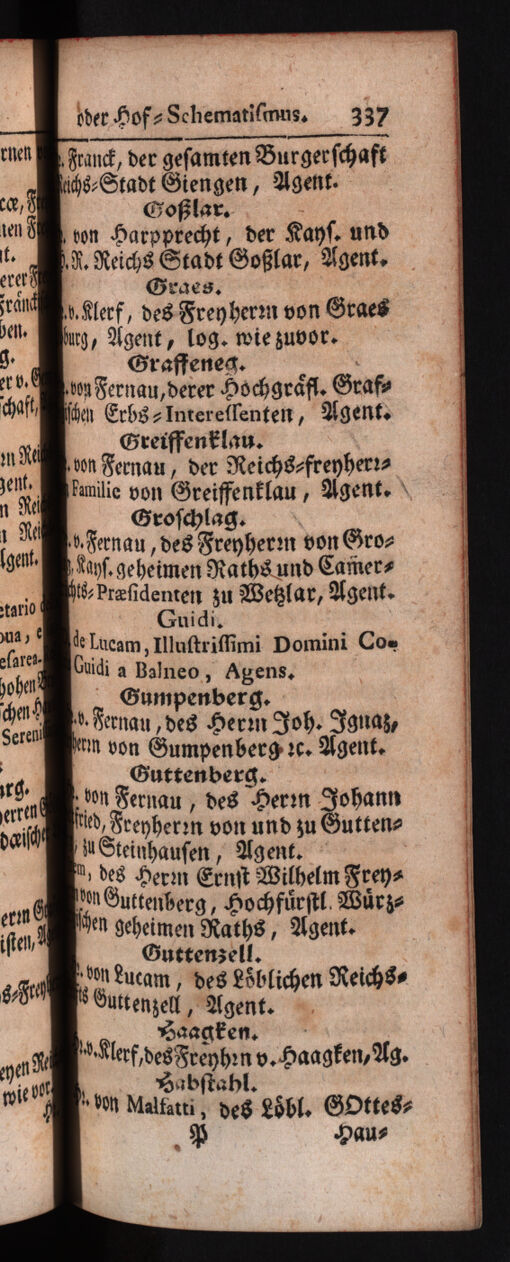 oder Hof-Schematismus. 337
Franck, der gesamten Burgerschaft
Reichs-Stadt Giengen, Agent.
Goßlar.
von Harpprecht, der Kays. und
H. R. Reichs Stadt Goßlar, Agent.
Graes.
v. Klerf, des Freyherrn von Graes
burg, Agent, log. wie zuvor.
Graffeneg.
von Fernau, derer Hochgräfl. Graf-
ischen Erbs-Interessenten, Agent.
Greiffenklau.
von Fernau, der Reichs-freyherr-
Familie von Greiffenklau, Agent.
Groschlag.
v. Fernau, des Freyherrn von Gro-
Kays. geheimen Raths und Cam̃er-
chts-Præsidenten zu Wetzlar, Agent.
Guidi.
de Lucam, Illustrissimi Domini Co-
Guidi a Balneo, Agens.
Gumpenberg.
v. Fernau, des Herrn Joh. Ignaz,
herrn von Gumpenberg ꝛc. Agent.
Guttenberg.
von Fernau, des Herrn Johann
fried, Freyherrn von und zu Gutten-
zu Steinhausen, Agent.
em, des Herrn Ernst Wilhelm Frey-
von Guttenberg, Hochfürstl. Würz-
ischen geheimen Raths, Agent.
Guttenzell.
von Lucam, des Löblichen Reichs-
fts Guttenzell, Agent.
Haagken.
v. Klerf, des Freyhrn v. Haagken, Ag.
Habstahl.
von Malfatti, des Löbl. GOttes-
P Hau-